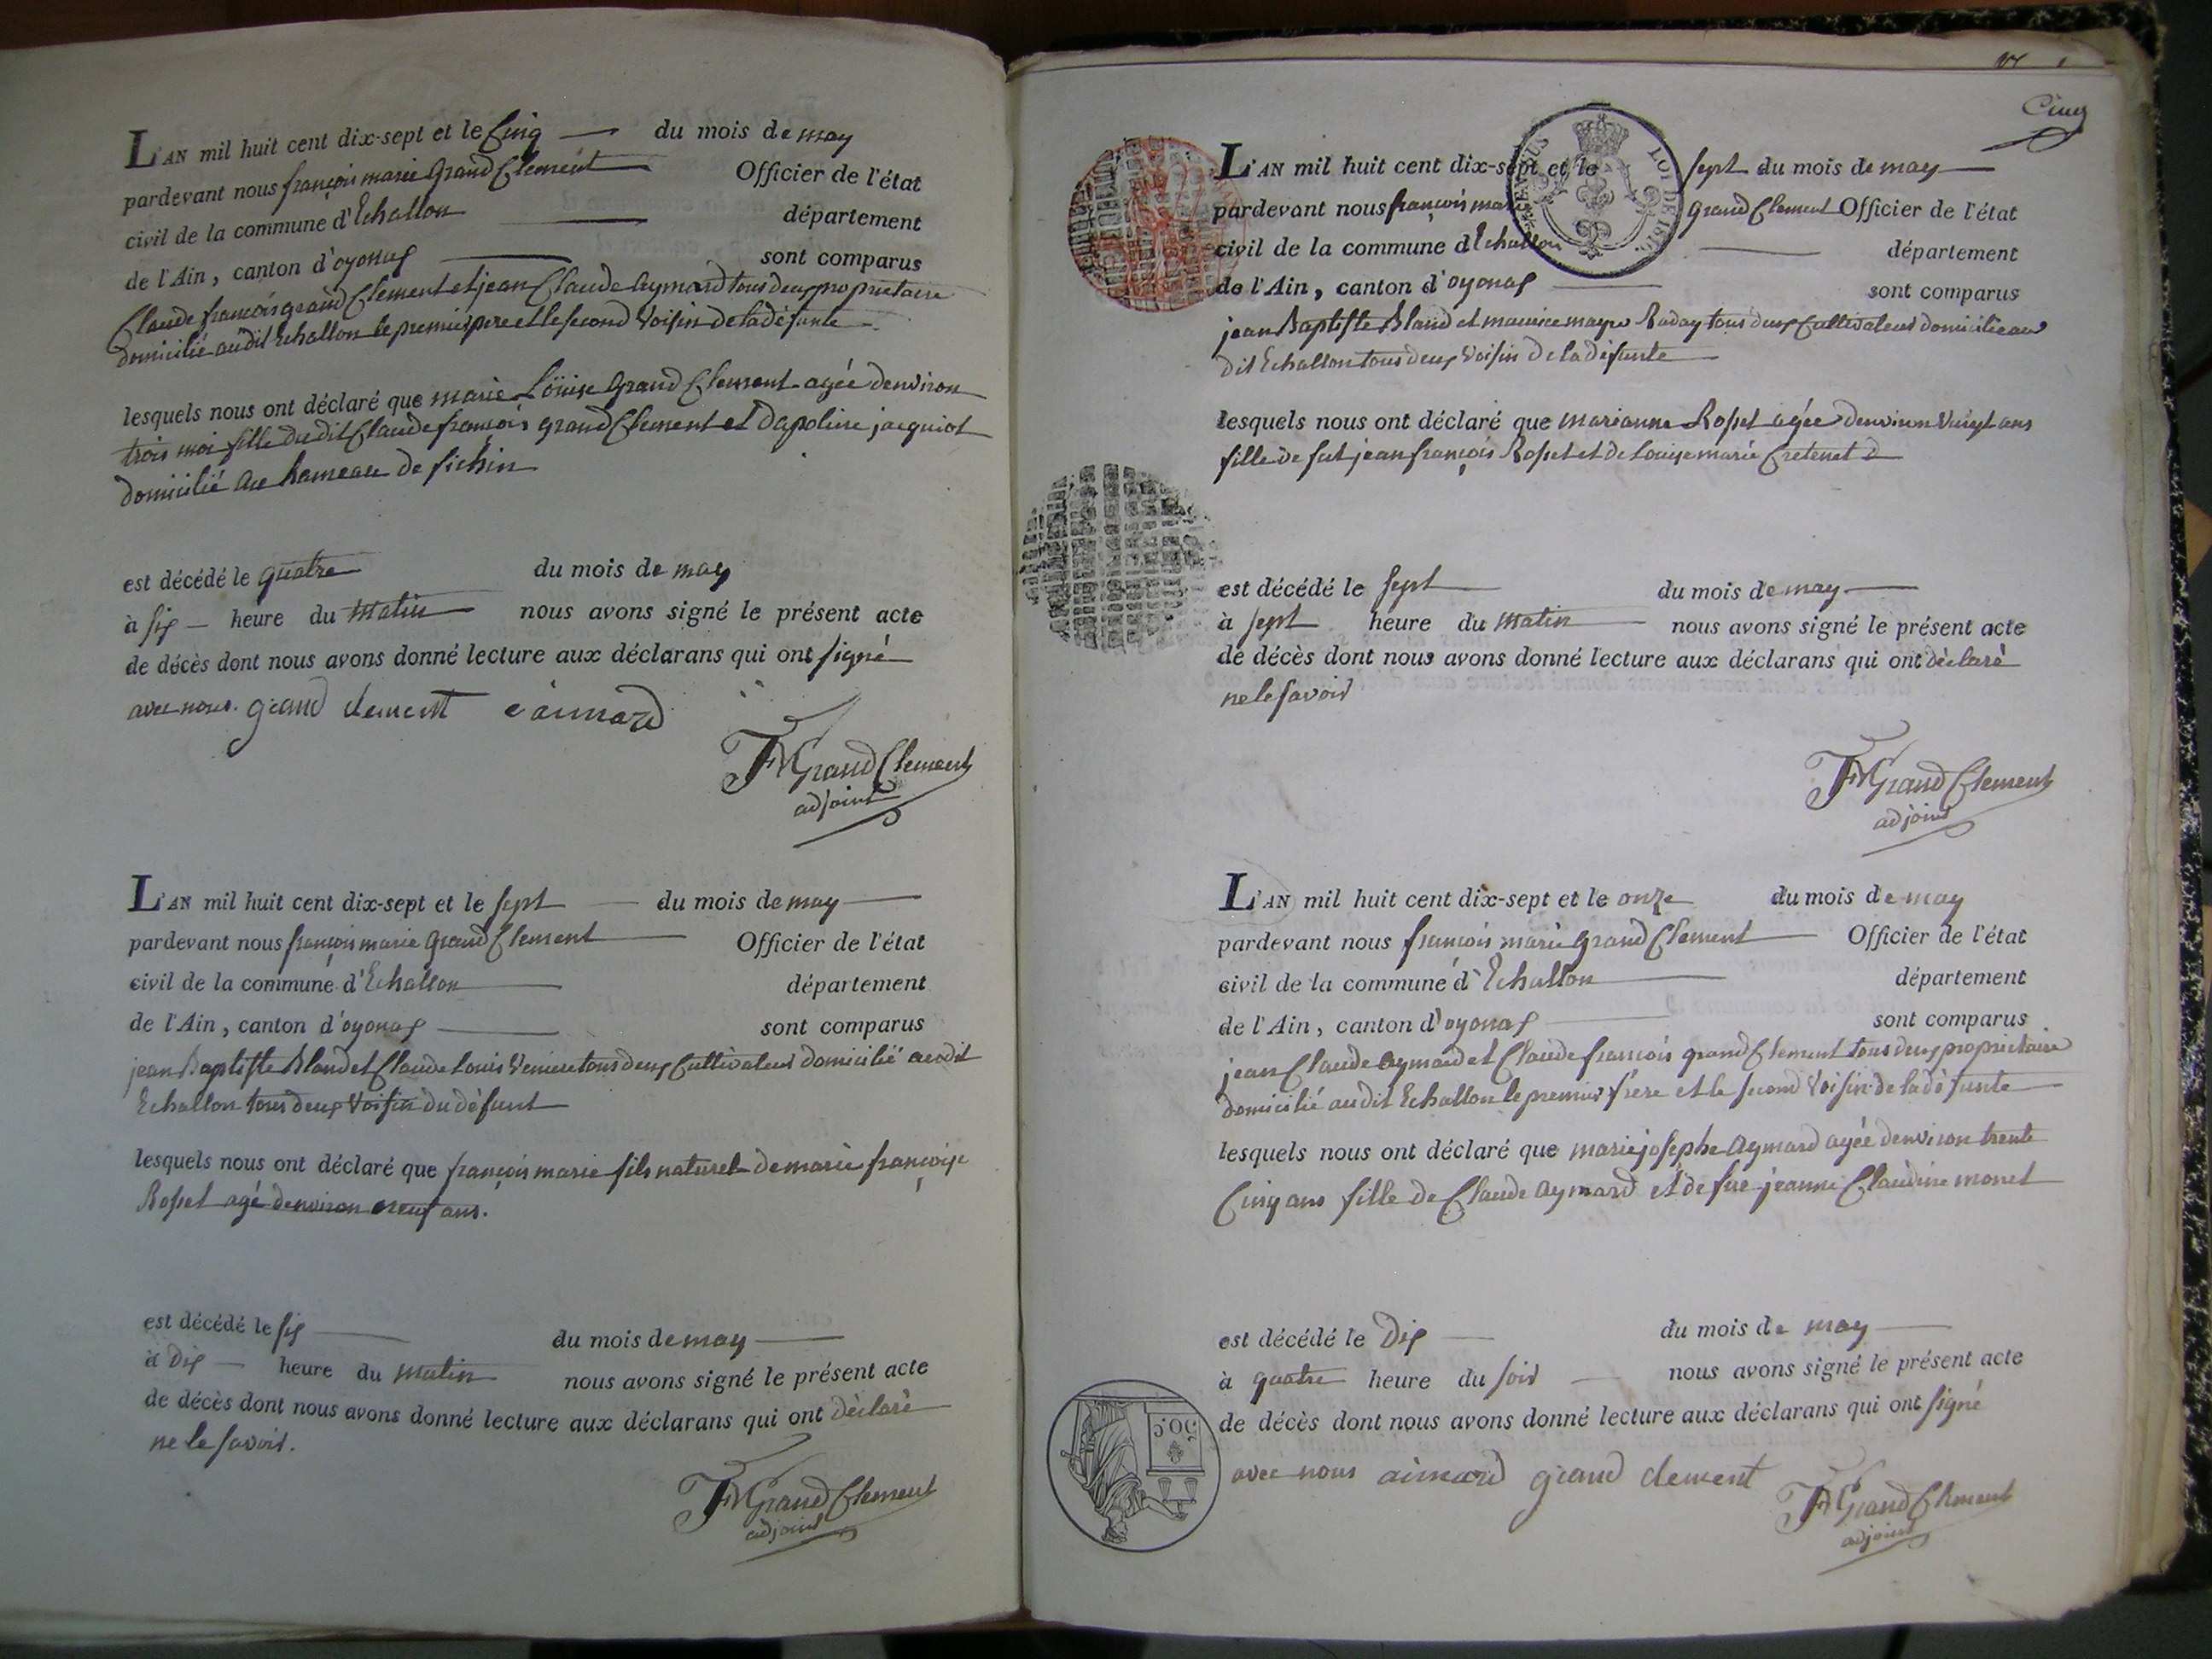 L'AN mil huit cent dix-sept et le Cinq du mois de may
pardevant nous françois marie Grand Clement Officier de l'état
civil de la commune d'Echallon département
de l'Ain, canton d'oyonas sont comparus
Claude françois grand Clement et jean Claude Aymard tous deux proprietaire
domicilié au dit Echallon le premier pere et le second Voisin de la défunte
lesquels nous ont déclaré que marie Loüise Grand Clement agée denviron
trois moi fille du dit Claude françois grand Clement et Dapoline jacquiot
domicilié au hameau de fichin
est décédé le quatre du mois de may
à six heure du Matin nous avons signé le présent acte
de décès dont nous avons donné lecture aux déclarans qui ont signé
avec nous. grand clement c aimard
FM Grand Clement
adjoint
L'AN mil huit cent dix-sept et le sept du mois de may
pardevant nous françois marie Grand Clement Officier de l'état
civil de la commune d'Echallon département
de l'Ain, canton d'oyonas sont comparus
jean Baptiste Bland et Claude Louis Veniere tous deux Cultivateur domicilié au dit
Echallon tous deux Voisin du défunt
lesquels nous ont déclaré que françois marie fils naturel de marie françoise
Rosset agé denviron neuf ans.
est décédé le six du mois de may
à Dix heure du Matin nous avons signé le présent acte
de décès dont nous avons donné lecture aux déclarans qui ont déclaré
ne le savoir.
FM Grand Clement
adjoint
Cinq
L'AN mil huit cent dix-sept et le sept du mois de may
pardevant nous françois marie Grand Clement Officier de l'état
civil de la commune d'Echallon département
de l'Ain, canton d'oyonas sont comparus
jean Baptiste Bland et maurice mayre tous deux Cultivateur domicilié au
dit Echallon tous deux Voisin de la défunte
lesquels nous ont déclaré que marianne Rosset agée denviron Vuigt ans
fille de fut jean françois Rosset et de Louise marie Cretenet
est décédé le sept du mois de may
à sept heure du Matin nous avons signé le présent acte
de décès dont nous avons donné lecture aux déclarans qui ont déclaré
ne le savoir
FM Grand Clement
adjoint
L'AN mil huit cent dix-sept et le onze du mois de may
pardevant nous françois marie Grand Clement Officier de l'état
civil de la commune d'Echallon département
de l'Ain, canton d'oyonas sont comparus
jean Claude Aymard et Claude françois grand Clement tous deux proprietaire
domicilié au dit Echallon le premier frère et le second Voisin de la défunte
lesquels nous ont déclaré que marie josephe Aymard agée denviron trente
Cinq ans fille de Claude Aymard et de fue jeanne Claudine monet
est décédé le Dix du mois de may
à quatre heure du soir nous avons signé le présent acte
de décès dont nous avons donné lecture aux déclarans qui ont signé
avec nous aimard grand clement
FM Grand Clement
adjoint